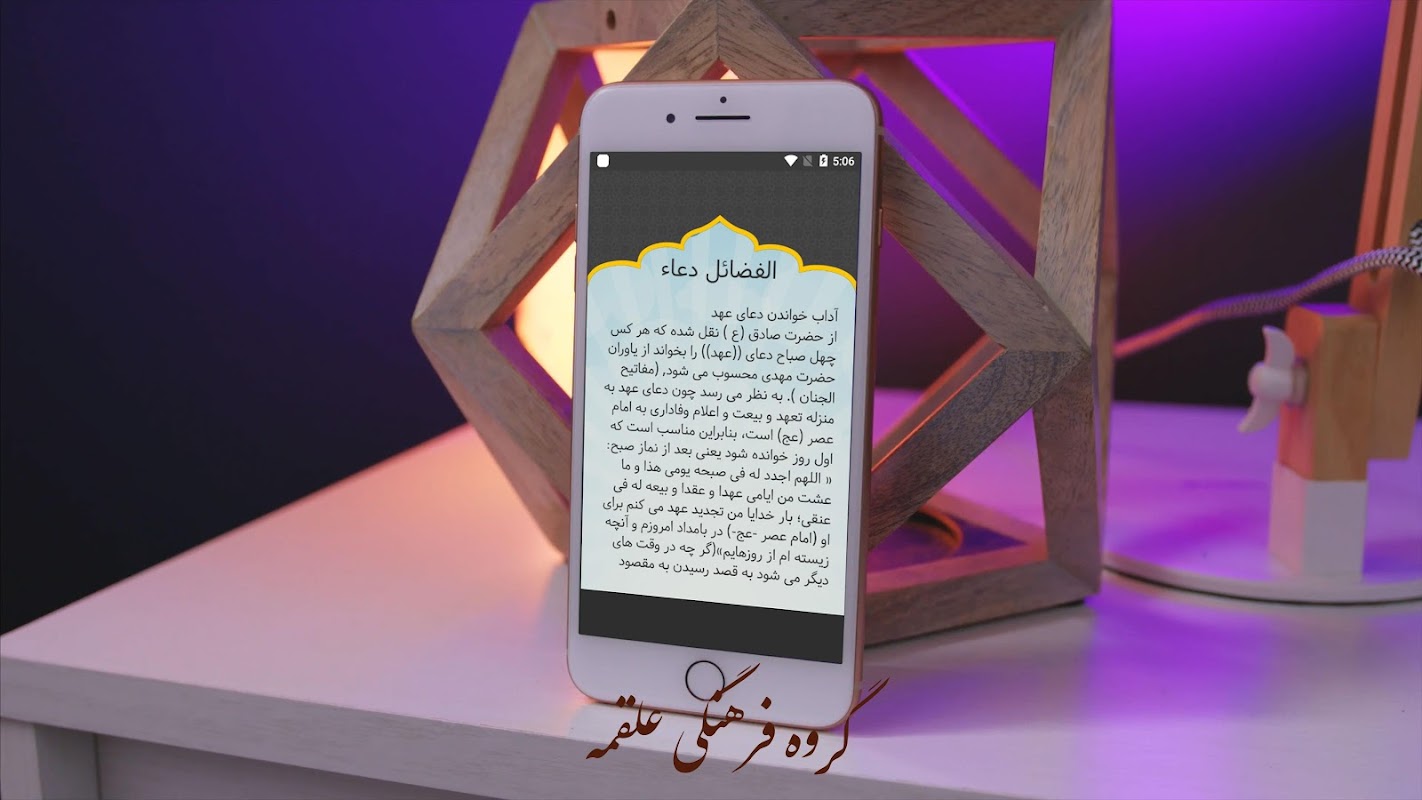 5:06
الفضائل دعاء
آداب خواندن دعای عهد
از حضرت صادق (ع ) نقل شده که هر کس
چهل صباح دعای ((عهد)) را بخواند از یاوران
حضرت مهدی محسوب می شود, (مفاتیح
الجنان ). به نظر می رسد چون دعای عهد به
منزله تعهد و بیعت و اعلام وفاداری به امام
عصر (عج) است، بنابراین مناسب است که
اول روز خوانده شود یعنی بعد از نماز صبح:
« اللهم اجدد له فی صبحه یومی هذا و ما
عشت من ایامی عهدا و عقدا و بیعه له فی
عنقی؛ بار خدایا من تجدید عهد می کنم برای
او (امام عصر -عج-) در بامداد امروزم و آنچه
زیسته ام از روزهایم»(گر چه در وقت های
دیگر می شود به قصد رسیدن به مقصود
گروه فرهنگی علقمه